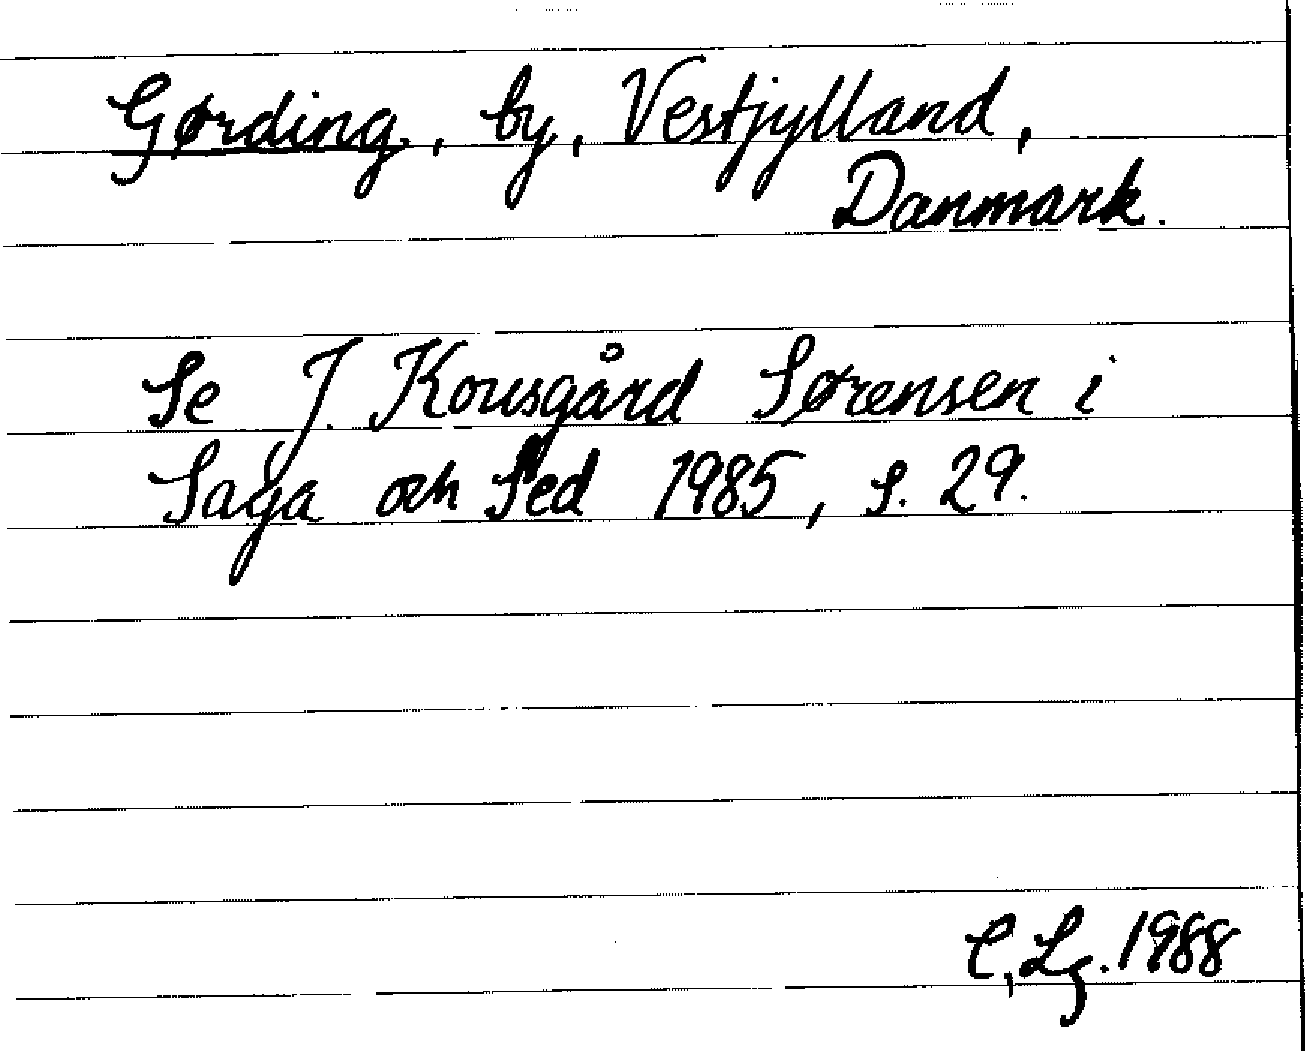 Gørding, by, Vestjylland,
Danmark.
Se J. Kousgård Sørensen i
Saga och Sed 1985, s. 29.
C, Lg. 1988